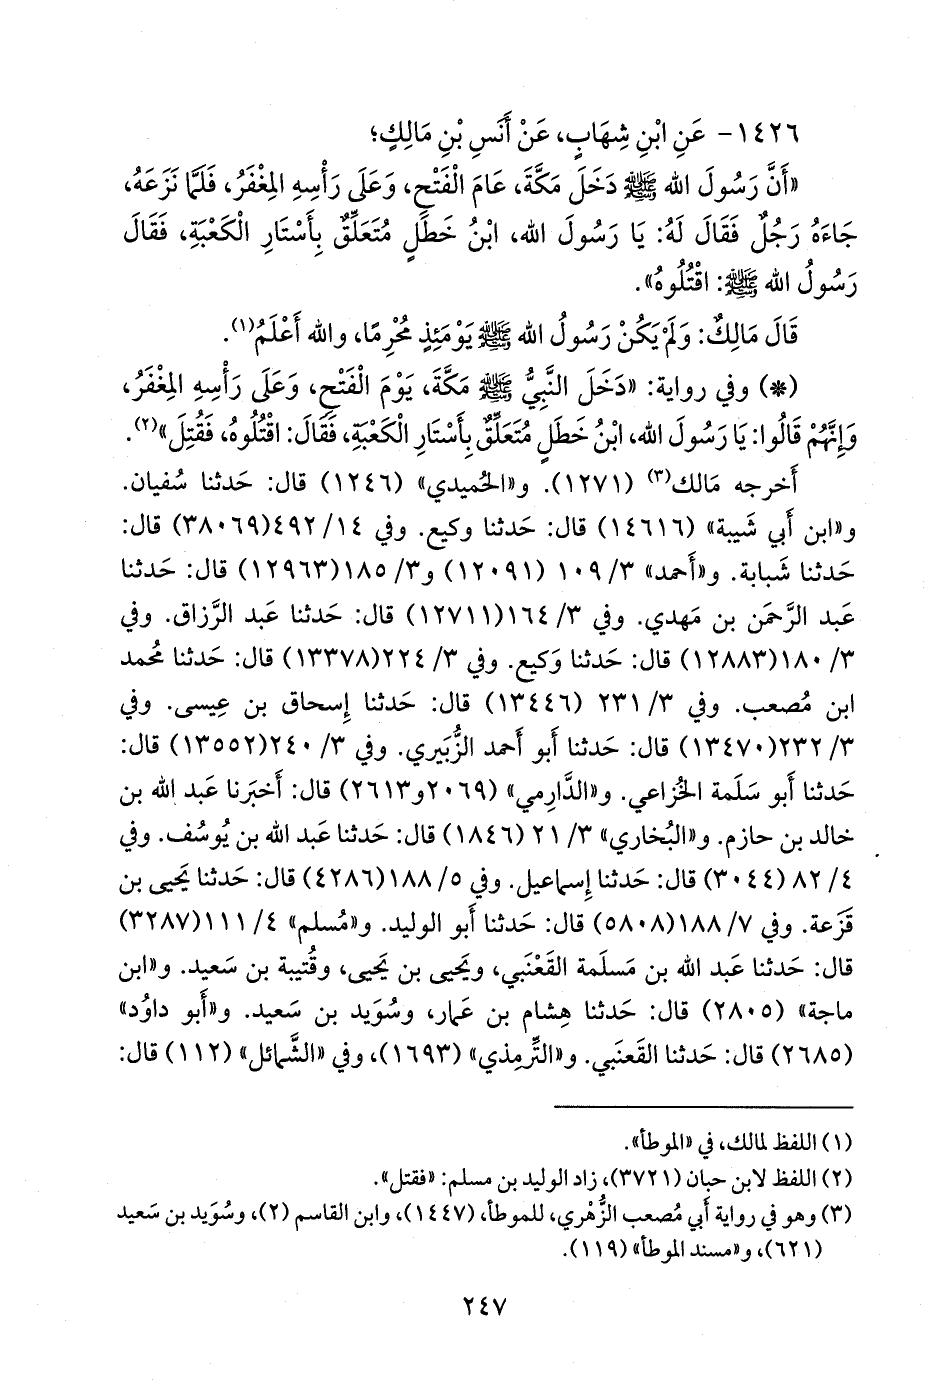 ١٤٢٦- عَنِ ابْنِ شِهَابٍ، عَنْ أَنَسِ بْنِ مَالِكٍ؛
«أَنَّ رَسُولَ الله ﷺ دَخَلَ مَكَّةَ، عَامَ الْفَتْحِ، وَعَلَى رَأْسِهِ المِغْفَرُ، فَلَمَّا نَزَعَهُ،
جَاءَهُ رَجُلٌ فَقَالَ لَهُ: يَا رَسُولَ الله، ابْنُ خَطَلٍ مُتَعَلِّقٌ بِأَسْتَارِ الْكَعْبَةِ، فَقَالَ
رَسُولُ الله ﷺ: اقْتُلُوهُ».
قَالَ مَالِكٌ: وَلَمْ يَكُنْ رَسُولُ الله ﷺ يَوْمَئِذٍ مُحْرِمًا، والله أَعْلَمُ(١).
(*) وفي رواية: «دَخَلَ النَّبِيُّ ﷺ مَكَّةَ، يَوْمَ الْفَتْحِ، وَعَلَى رَأْسِهِ المِغْفَرُ،
وَإِنَّهُمْ قَالُوا: يَا رَسُولَ الله، ابْنُ خَطَلٍ مُتَعَلِّقٌ بِأَسْتَارِ الْكَعْبَةِ، فَقَالَ: اقْتُلُوهُ، فَقُتِلَ»(٢).
أَخرجه مَالك(٣) (١٢٧١). و«الحُميدي» (١٢٤٦) قال: حَدثنا سُفيان.
و«ابن أَبي شَيبة» (١٤٦١٦) قال: حَدثنا وكيع. وفي ١٤/ ٤٩٢(٣٨٠٦٩) قال:
حَدثنا شَبابة. و«أَحمد» ٣/ ١٠٩ (١٢٠٩١) و٣/ ١٨٥(١٢٩٦٣) قال: حَدثنا
عَبد الرَّحمَن بن مَهدي. وفي ٣/ ١٦٤(١٢٧١١) قال: حَدثنا عَبد الرَّزاق. وفي
٣/ ١٨٠(١٢٨٨٣) قال: حَدثنا وَكيع. وفي ٣/ ٢٢٤(١٣٣٧٨) قال: حَدثنا مُحمد
ابن مُصعب. وفي ٣/ ٢٣١ (١٣٤٤٦) قال: حَدثنا إِسحاق بن عِيسى. وفي
٣/ ٢٣٢(١٣٤٧٠) قال: حَدثنا أَبو أَحمد الزُّبَيري. وفي ٣/ ٢٤٠(١٣٥٥٢) قال:
حَدثنا أَبو سَلَمة الخُزاعي. و«الدَّارِمي» (٢٠٦٩و٢٦١٣) قال: أَخبَرنا عَبد الله بن
خالد بن حازم. و«البُخاري» ٣/ ٢١ (١٨٤٦) قال: حَدثنا عَبد الله بن يُوسُف. وفي
٤/ ٨٢ (٣٠٤٤) قال: حَدثنا إِسماعيل. وفي ٥/ ١٨٨(٤٢٨٦) قال: حَدثنا يَحيى بن
قَزَعة. وفي ٧/ ١٨٨(٥٨٠٨) قال: حَدثنا أَبو الوليد. و«مُسلم» ٤/ ١١١(٣٢٨٧)
قال: حَدثنا عَبد الله بن مَسلَمة القَعْنَبي، ويَحيى بن يَحيى، وقُتيبة بن سَعيد. و«ابن
ماجة» (٢٨٠٥) قال: حَدثنا هِشام بن عَمار، وسُوَيد بن سَعيد. و«أَبو داوُد»
(٢٦٨٥) قال: حَدثنا القَعنَبي. و«التِّرمِذي» (١٦٩٣)، وفي «الشَّمائل» (١١٢) قال:
(١) اللفظ لمالك، في «الموطأ».
(٢) اللفظ لابن حبان (٣٧٢١)، زاد الوليد بن مسلم: «فقتل».
(٣) وهو في رواية أَبي مُصعب الزُّهري، للموطأ، (١٤٤٧)، وابن القاسم (٢)، وسُوَيد بن سَعيد
(٦٢١)، و«مسند الموطأ» (١١٩).
٢٤٧